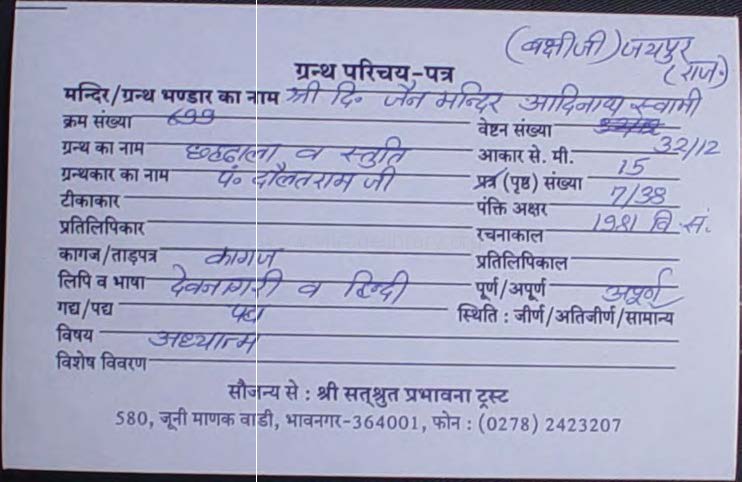 (बक्षीजी) जयपुर
(राज॰)
ग्रन्थ परिचय-पत्र
मन्दिर/ग्रन्थ भण्डार का नाम श्री दि॰ जैन मन्दिर आदिनाथ स्वामी
क्रम संख्या 699 वेष्टन संख्या 32/12
ग्रंथ का नाम छहढाला व स्तुति आकार से. मी.
ग्रन्थकार का नाम पं॰ दौलतराम जी प्रत्र (पृष्ठ) संख्या 15
टीकाकार पंक्ति अक्षर 7/38
प्रतिलिपिकार रचनाकाल 1981 वि.सं.
कागज/ताड़पत्र कागज प्रतिलिपिकाल
लिपि व भाषा देवनागरी व हिन्दी पूर्ण/अपूर्ण अपूर्ण
गद्य/पद्य पद्य स्थिति : जीर्ण/अतिजीर्ण/सामान्य
विषय अध्यात्म
विशेष विवरण
सौजन्य से : श्री सत्श्रुत प्रभावना ट्रस्ट
580, जूनी माणक वाडी, भावनगर-364001, फोन : (0278) 2423207